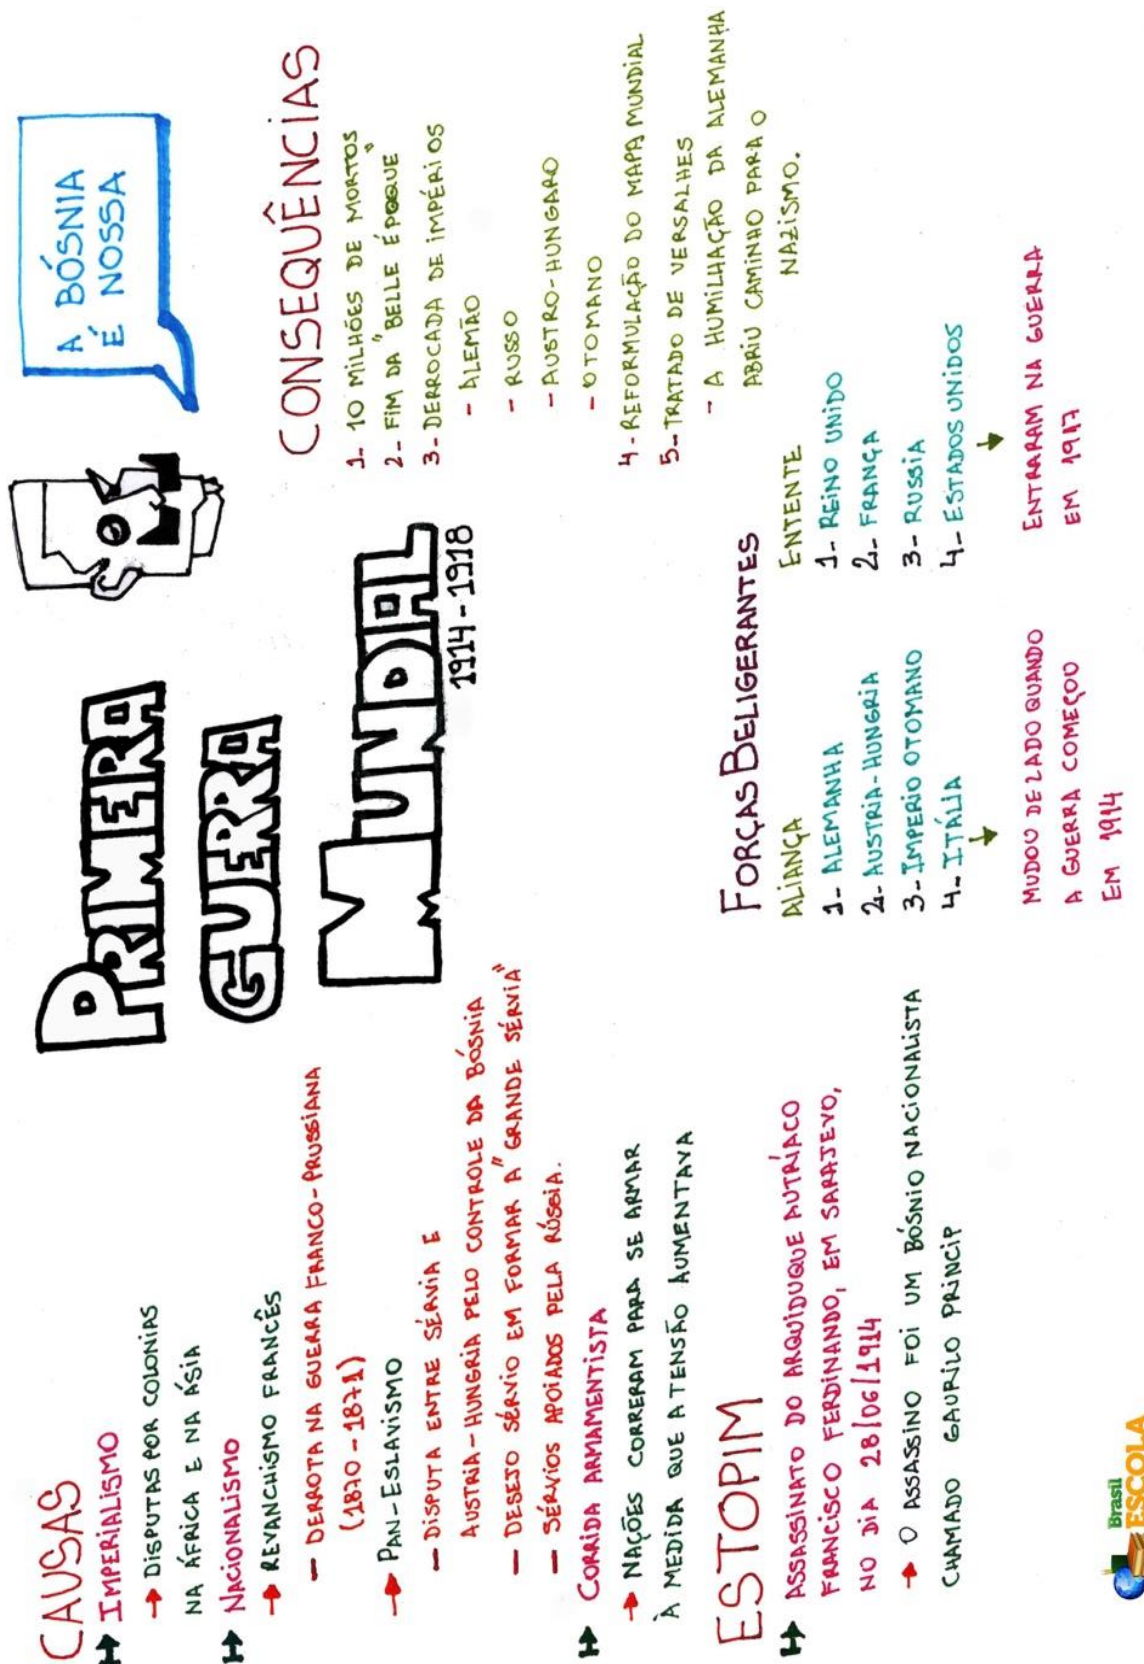 CAUSAS
IMPERIALISMO
DISPUTAS POR COLONIAS
NA ÁFRICA E NA ÁSIA
NACIONALISMO
REVANCHISMO FRANCÊS
- DERROTA NA GUERRA FRANCO-PRUSSIANA
(1870-1871)
PAN-ESLAVISMO
- DISPUTA ENTRE SÉRVIA E
AUSTRIA-HUNGRIA PELO CONTROLE DA BÓSNIA
- DESEJO SÉRVIO EM FORMAR A "GRANDE SÉRVIA"
- SÉRVIOS APOIADOS PELA RÚSSIA.
CORRIDA ARMAMENTISTA
NAÇÕES CORRERAM PARA SE ARMAR
À MEDIDA QUE A TENSÃO AUMENTAVA
ESTOPIM
ASSASSINATO DO ARQUIDUQUE AUTRÍACO
FRANCISCO FERDINANDO, EM SARAJEVO,
NO DIA 28/06/1914
O ASSASSINO FOI UM BÓSNIO NACIONALISTA
CHAMADO GAURILO PRINCIP
PRIMERA
GUERRA
MUNDIAL
1914-1918
A BÓSNIA
É NOSSA
FORÇAS BELIGERANTES
ALIANÇA
1- ALEMANHA
2- AUSTRIA-HUNGRIA
3- IMPERIO OTOMANO
4- ITÁLIA
MUDOU DE LADO QUANDO
A GUERRA COMEÇOU
EM 1914
ENTENTE
1- REINO UNIDO
2- FRANÇA
3- RUSSIA
4- ESTADOS UNIDOS
ENTRARAM NA GUERRA
EM 1917
CONSEQUÊNCIAS
1- 10 MILHÕES DE MORTOS
2- FIM DA "BELLE ÉPOQUE"
3- DERROCADA DE IMPÉRIOS
- ALEMÃO
- RUSSO
- AUSTRO-HUNGARO
- OTOMANO
4- REFORMULAÇÃO DO MAPA MUNDIAL
5- TRATADO DE VERSALHES
- A HUMILHAÇÃO DA ALEMANHA
ABRIU CAMINHO PARA O
NAZISMO.
Brasil
ESCOLA